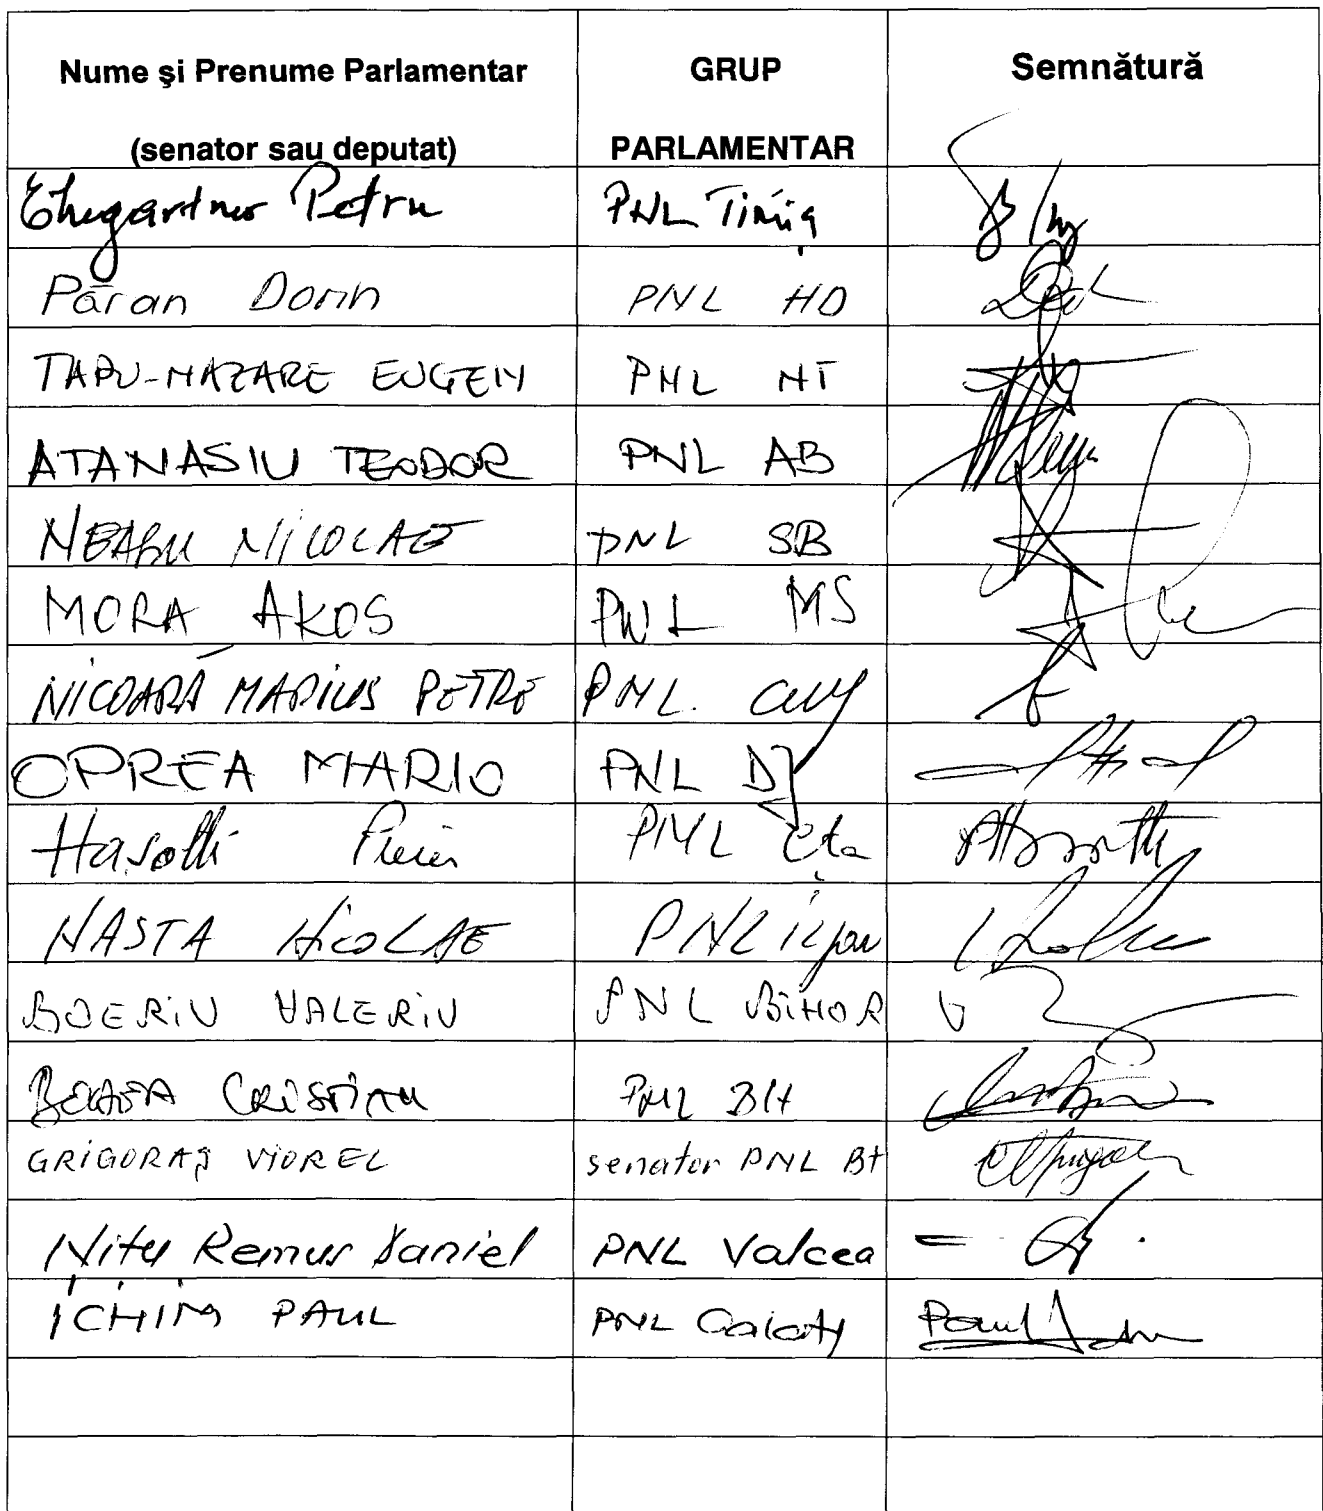 Nume şi Prenume Parlamentar
(senator sau deputat)
GRUP
PARLAMENTAR
Semnătură
Ehegartner Petru PNL Timiş
Păran Dorin PNL HD
TAPU-NAZARE EUGEN PNL NT
ATANASIU TEODOR PNL AB
NEAGU NICOLAE PNL SB
MORA AKOS PNL MS
NICOARĂ MARIUS PETRE PNL. Cluj
OPREA MARIO PNL DJ
Hasotti Puiu PNL Cta
NASTA NICOLAE PNL Ilfov
BOERIU VALERIU PNL BIHOR
CRISTIAN PNL BH
GRIGORAŞ VIOREL senator PNL BT
Niţu Remus Daniel PNL Valcea
ICHIM PAUL PNL Galaţi
Paul